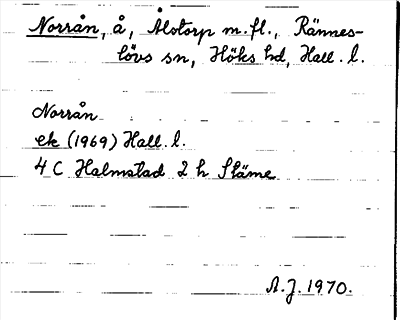 Norrån, å, Ålstorp m.fl., Rännes-
lövs sn, Höks hd, Hall. l.
Norrån
ek (1969) Hall. l.
4 C Halmstad 2 h Släme
A.J. 1970.